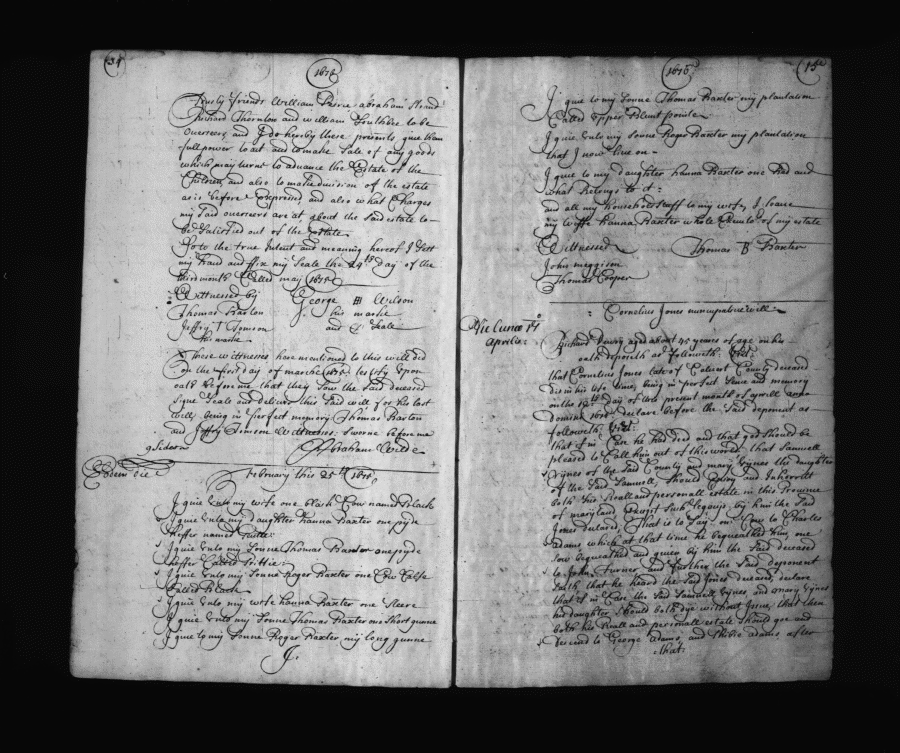 34
1676
Trusty friends William Peirce Abraham
Richard Thornton and William to be
overseers, and I do hereby these presents give them
full power to act and to make Sale of any goods
which may turne to advance the Estate of the
Children, and also to make division of the estate
as is before Expressed, and also what Charges
my Said overseers are at about the Said estate to
be Satisfied out of the Estate
So to the true Intent and meaning hereof I Sett
my hand and affix my Seale the 24th Day of the
third month Called may (1675)
Wittnessed by
George Wilson
Thomas Barton
his marke
Jeffry T Tomson
and Seale
his marke
These wittnesses here mentioned to this will did
on the first day of march 1675 testify upon
oath before me that they Saw the Said deceased
Signe Seale and deliver this Said will for his last
Will being in perfect memory Thomas Barton
and Jeffry Tomson Wittnesses. Sworne before me
Abraham Wilde
Eodem die
February this 25th (1675)
I give unto my wife one black Cow named Black
I give unto my daughter hanna Baxter one pyde
heffer named
I give unto my Sonne Thomas Baxter one pyde
heffer Called
I give unto my Sonne Roger Baxter one Cow Calfe
Called Black
I give unto my wife hanna Baxter one Steere
I give unto my Sonne Thomas Baxter one Short gunne
I give to my Sonne Roger Baxter my long gunne
I.
1676
I give to my Sonne Thomas Baxter my plantation
Called upper Blunt pointe
I give unto my Sonne Roger Baxter my plantation
that I now live on
I give to my daughter hanna Baxter one Bed and
what belongs to it:
and all my household Stuff to my wife, I leave
my wiffe hanna Baxter whole of my estate
Wittnessed
Thomas B Baxter
John meggison
Thomas Cooper
: Cornelius Jones nuncupative will
Aprilis:
Richard aged about 45 years of age on his
oath deposeth as followeth. Vizt:
that Cornelius Jones late of Calvert County deceased
did in his life time, being in perfect Sence and memory
on the day of this present month of aprill anno
domini 1676 declare before the Said deponent as
followeth. Vizt:
that if in Case he had died and that god should be
pleased to Call him out of this world, that Samuell
Vynes of the Said County and mary Vynes the daughter
of the Said Samuell, should Enjoy and Inherritt
both his Reall and personall estate in this Province
of maryland Except Such legacies by him the Said
Jones declared, That is to Say one Cow to Charles
adams which at that time he bequeathed him, one
Sow bequeathed and given by him the Said deceased
to John Turner and further the Said deponent
saith that he heard the Said Jones deceased, declare
that if in Case the Said Samuell Vynes, and mary Vynes
his daughter Should both dye without Issue, that then
both his Reall and personall estate Should goe and
descend to George adams, and adams, after
that: